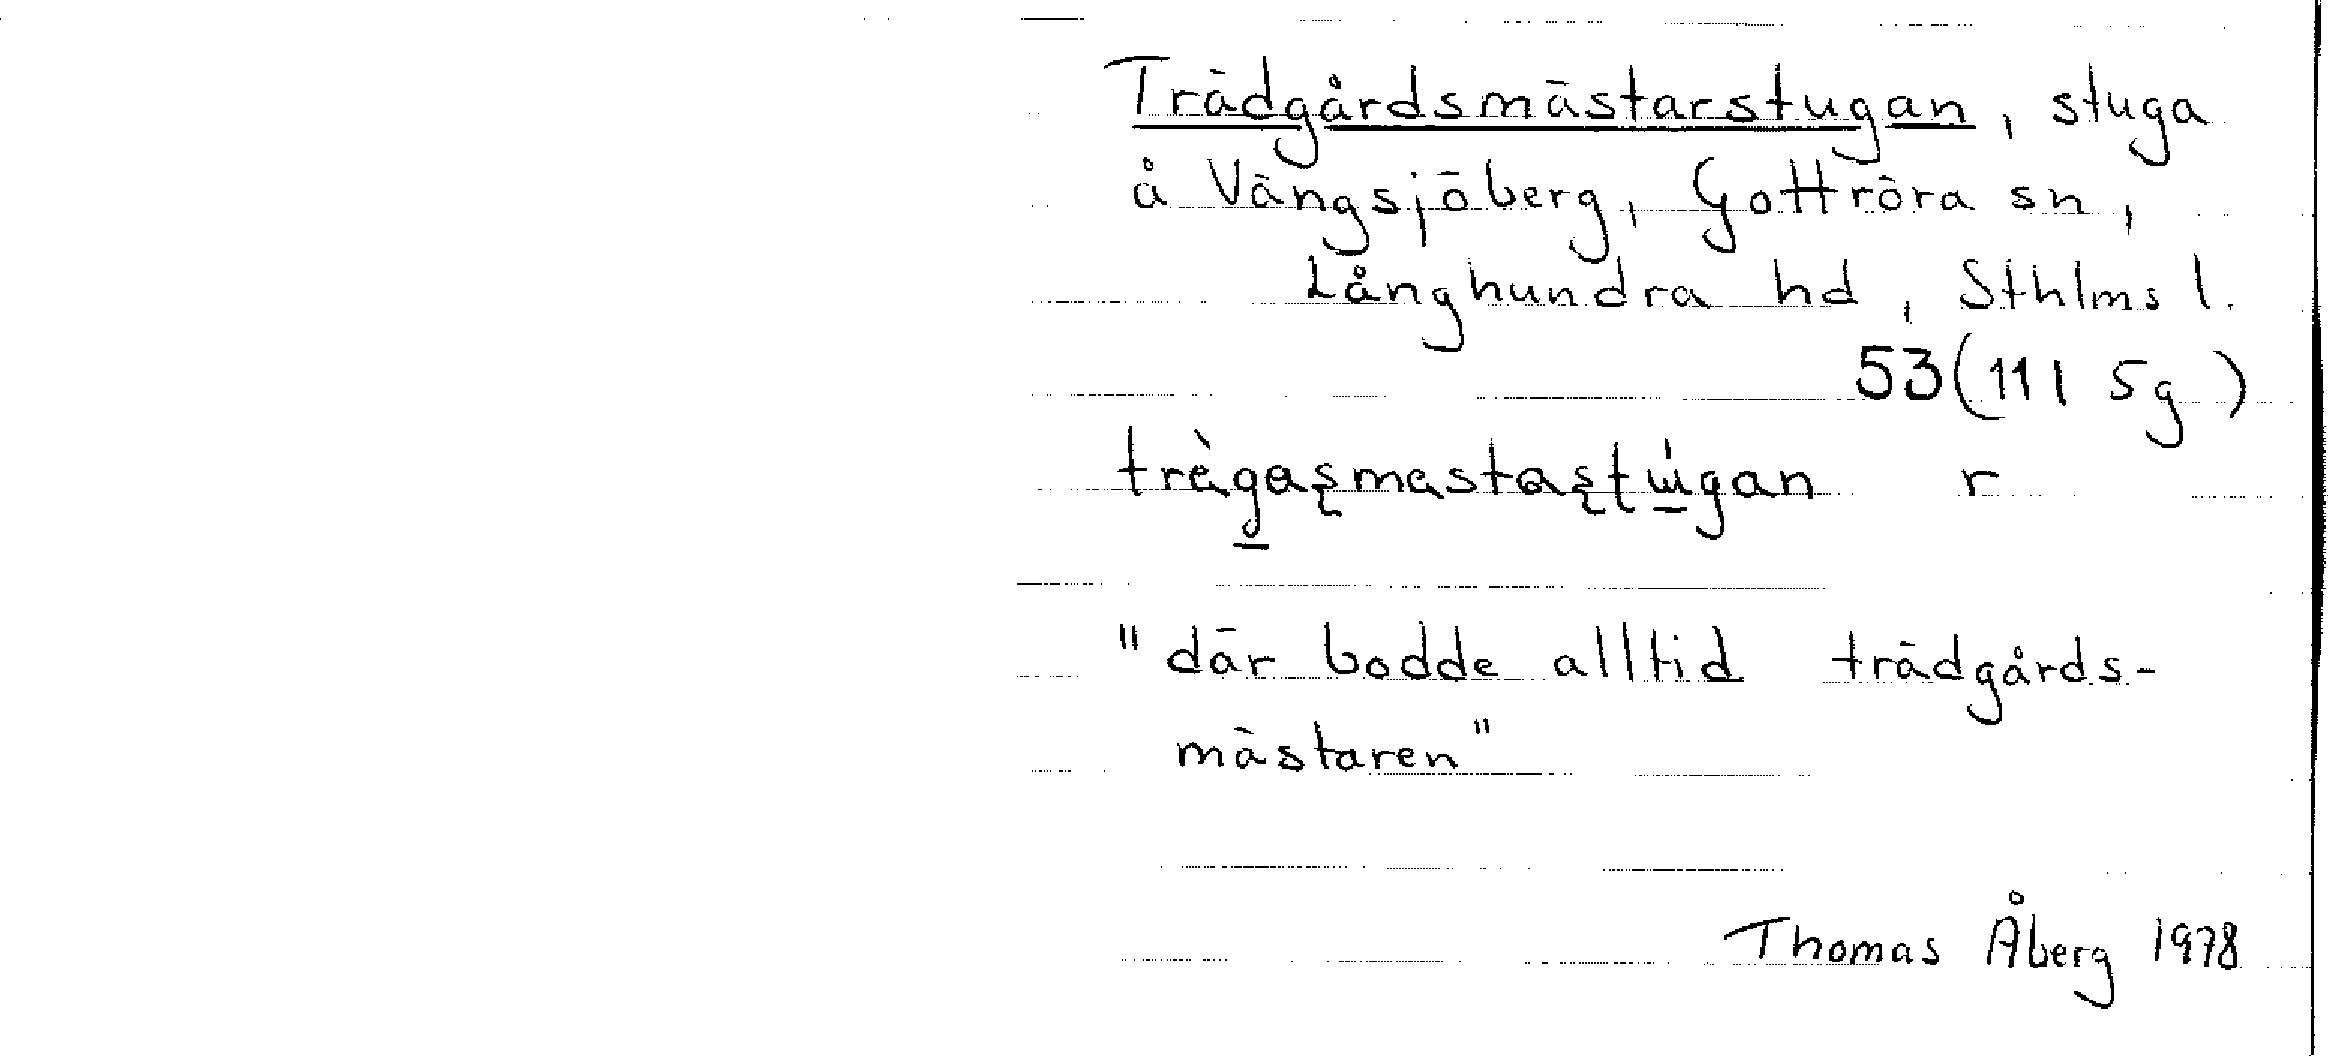 Trädgårdsmästarstugan, stuga
å Vängsjöberg, Gottröra sn,
Långhundra hd, Sthlms l.
53(111 5g)
r
"där bodde alltid trädgårds-
mästaren"
Thomas Åberg 1978